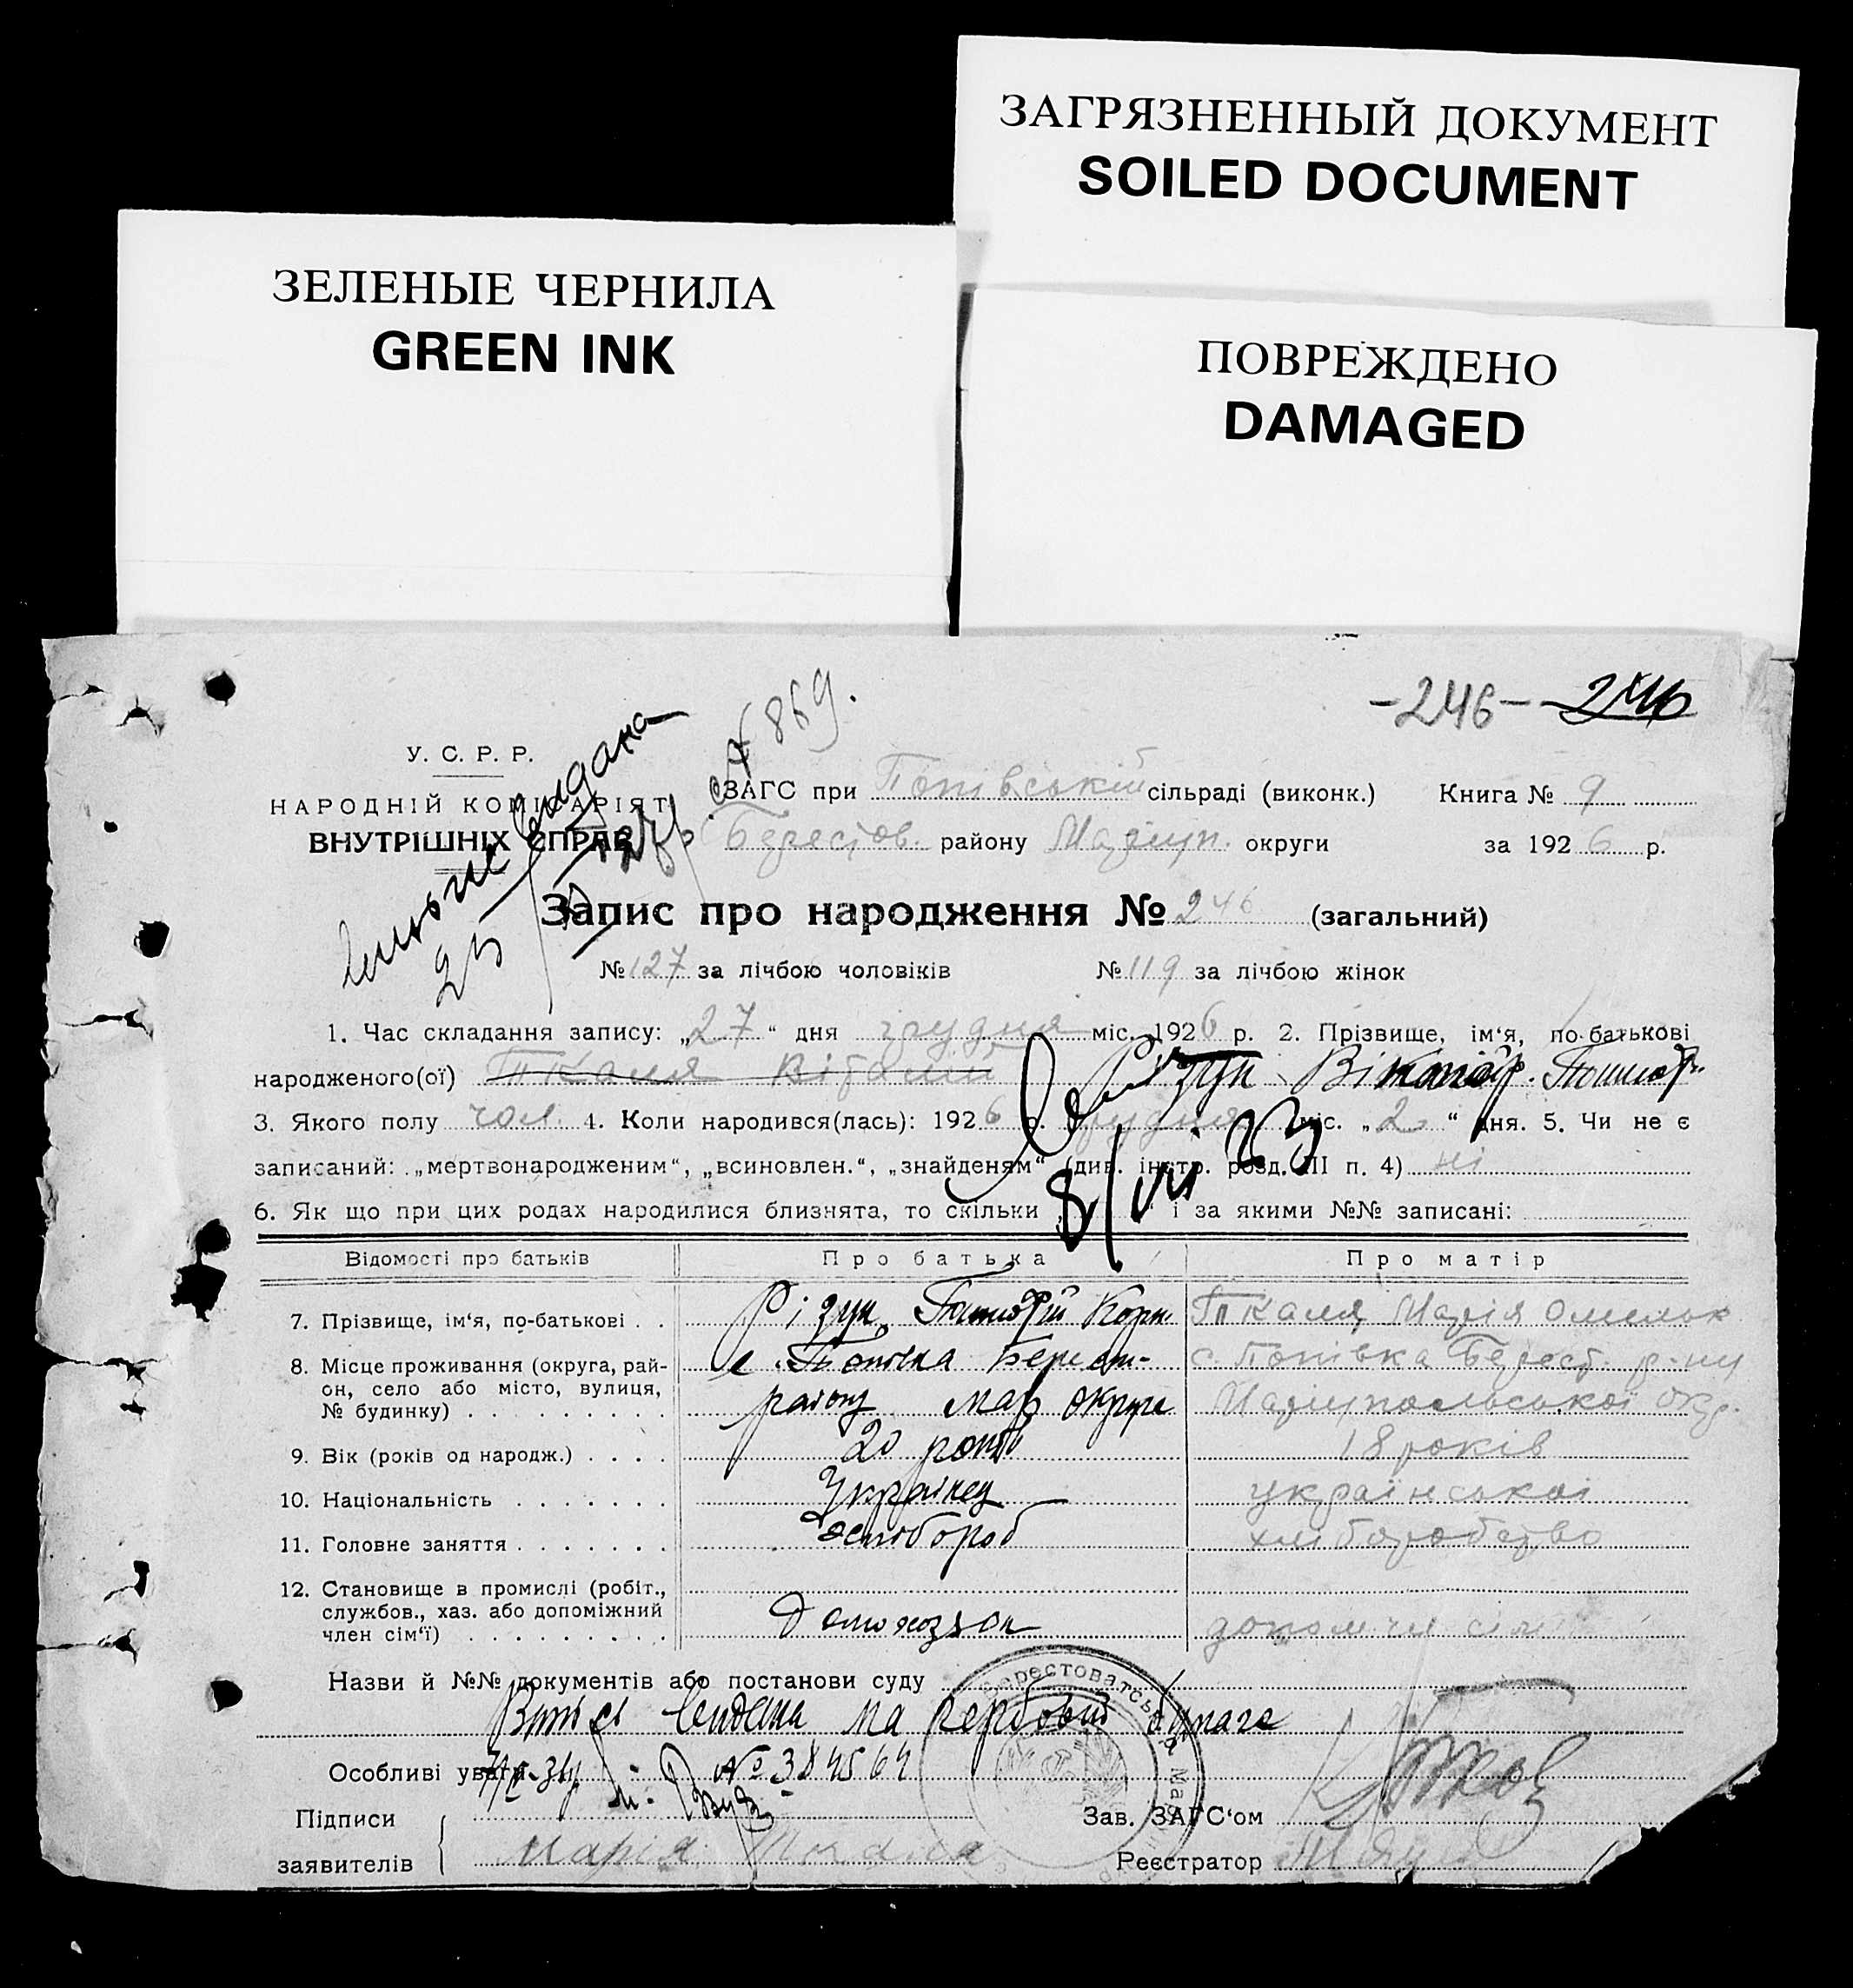 ЗАГРЯЗНЕННЫЙ ДОКУМЕНТ
SOILED DOCUMENT
ЗЕЛЕНЫЕ ЧЕРНИЛА
GREEN INK
ПОВРЕЖДЕНО
DAMAGED
-246- 246
869.
У. С. Р. Р.
НАРОДНІЙ КОМІСАРІЯТ
ВНУТРІШНІХ СПРАВ
ЗАГС при Попівській сільраді (виконк.) Книга № 9
Берестов. району Маріуп. округи за 1926 р.
Запис про народження № 246 (загальний)
№ 127 за лічбою чоловіків № 119 за лічбою жінок
1. Час складання запису: „27“ дня грудня міс. 1926 р. 2. Прізвище, ім‘я, по-батькові
народженого(ої) Ткаля Віталій Різун
3. Якого полу чол. 4. Коли народився(лась): 1926 р. грудня міс. „2“ дня. 5. Чи не є
записаний: „мертвонародженим“, „всиновлен.“, „знайденям“ (див. інстр. розд. III п. 4) ні
6. Як що при цих родах народилися близнята, то скільки „ “ і за якими №№ записані:
Відомості про батьків Про батька Про матір
7. Прізвище, ім‘я, по-батькові . . Різун Тимофій Корн. Ткаля Марія Омельк
8. Місце проживання (округа, рай- с. Попівка Берест- с. Попівка Берест. р-ну
он, село або місто, вулиця,
№ будинку) . . . . . . . . . району Мар округи Маріупольської окр.
9. Вік (років од народж.) . . . . 20 років 18 років
10. Національність . . . . . . . Українец української
11. Головне заняття . . . . . . . хлібороб хліборобство
12. Становище в промислі (робіт.,
службов., хаз. або допоміжний
член сім‘ї) . . . . . . . . . Домохозяин допом. чл сім
Назви й №№ документів або постанови суду
видана на гербовій бумаге
Особливі уваги № 384564
Підписи Зав. ЗАГС‘ом
заявителів Марія Ткаля Реєстратор